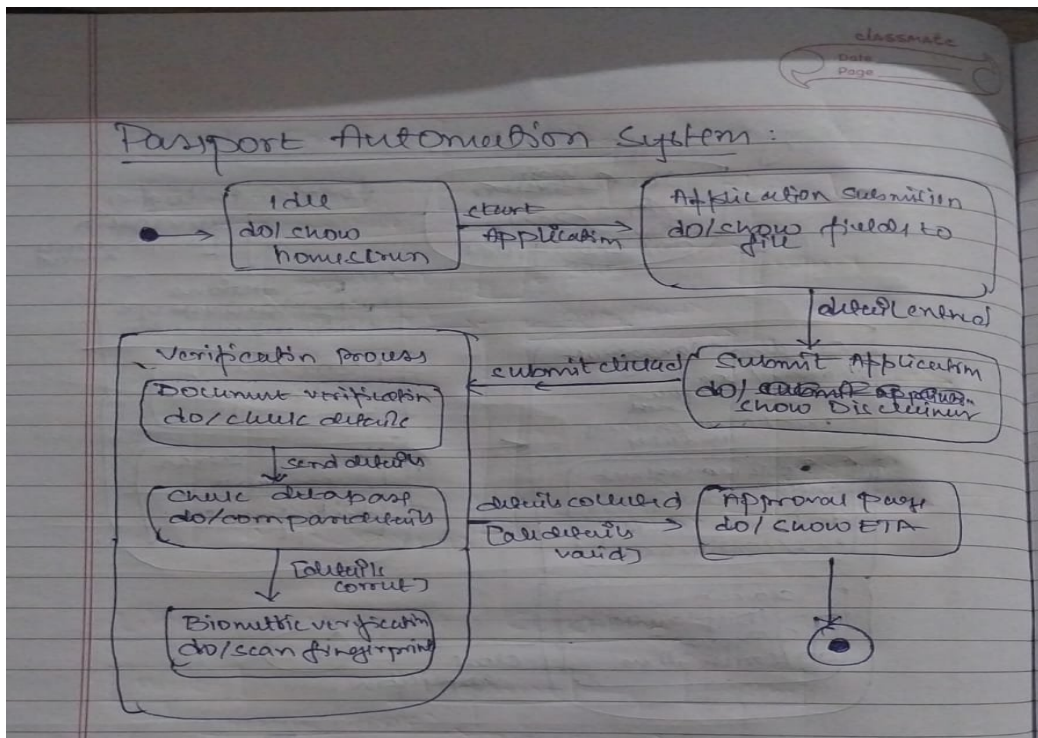 classmate
Date
Page
Passport Automation System :
Idle
do/ show
homescreen
start
Application
Application Submission
do/show fields to
fill
details entered
Submit Application
do/
show Disclaimer
submit clicked
Verification process
Document verification
do/check details
send details
Check database
do/compare details
[details
correct]
Biometric verification
do/scan fingerprint
details collected
[all details
valid]
Approval Page
do/ show ETA